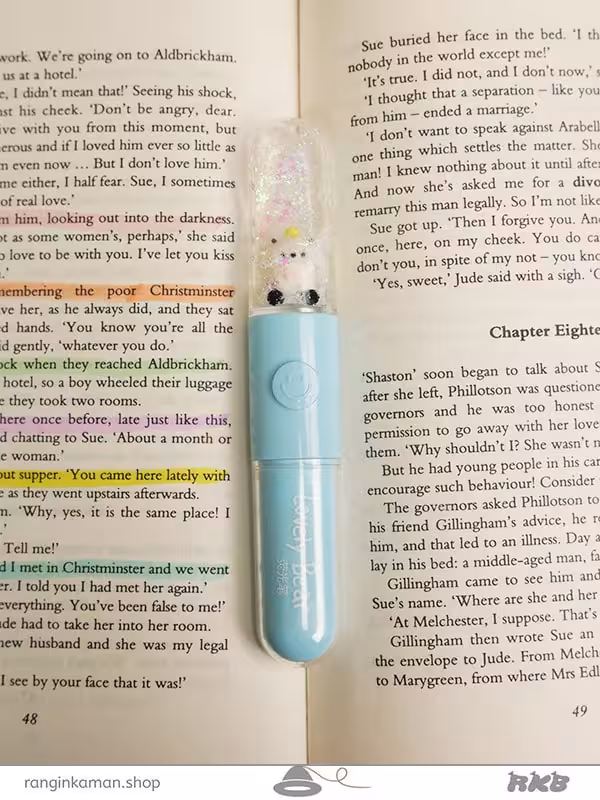 work. We're going on to Aldbrickham.
us at a hotel.'
e, I didn't mean that!' Seeing his shock,
nst his cheek. 'Don't be angry, dear.
ive with you from this moment, but
nerous and if I loved him ever so little as
m even now ... But I don't love him.'
me either, I half fear. Sue, I sometimes
of real love.'
m him, looking out into the darkness.
ot as some women's, perhaps,' she said
o love to be with you. I've let you kiss
.'
membering the poor Christminster
ve her, as he always did, and they sat
ed hands. 'You know you're all the
id gently, 'whatever you do.'
ock when they reached Aldbrickham.
hotel, so a boy wheeled their luggage
e they took two rooms.
here once before, late just like this,
d chatting to Sue. 'About a month or
e woman.'
out supper. 'You came here lately with
e as they went upstairs afterwards.
n. 'Why, yes, it is the same place! I
.'
Tell me!'
d I met in Christminster and we went
er. I told you I had met her again.'
everything. You've been false to me!'
ude had to take her into her room.
new husband and she was my legal
I see by your face that it was!'
48
Sue buried her face in the bed. 'I th
nobody in the world except me!'
'It's true. I did not, and I don't now,' s
'I thought that a separation – like you
from him – ended a marriage.'
'I don't want to speak against Arabell
one thing which settles the matter. She
man! I knew nothing about it until after
And now she's asked me for a divo
remarry this man legally. So I'm not like
Sue got up. 'Then I forgive you. And
once, here, on my cheek. You do ca
don't you, in spite of my not – you kno
'Yes, sweet,' Jude said with a sigh. 'G
Chapter Eighte
'Shaston' soon began to talk about S
after she left, Phillotson was questione
governors and he was too honest
permission to go away with her love
them. 'Why shouldn't I? She wasn't m
But he had young people in his car
encourage such behaviour! Consider
The governors asked Phillotson to
his friend Gillingham's advice, he r
him, and that led to an illness. Day a
lay in his bed: a middle-aged man, fa
Gillingham came to see him and
Sue's name. 'Where are she and her
'At Melchester, I suppose. That's
Gillingham then wrote Sue an
the envelope to Jude. From Melch
to Marygreen, from where Mrs Edl
49
Lovely Bear
ranginkaman.shop
RKB